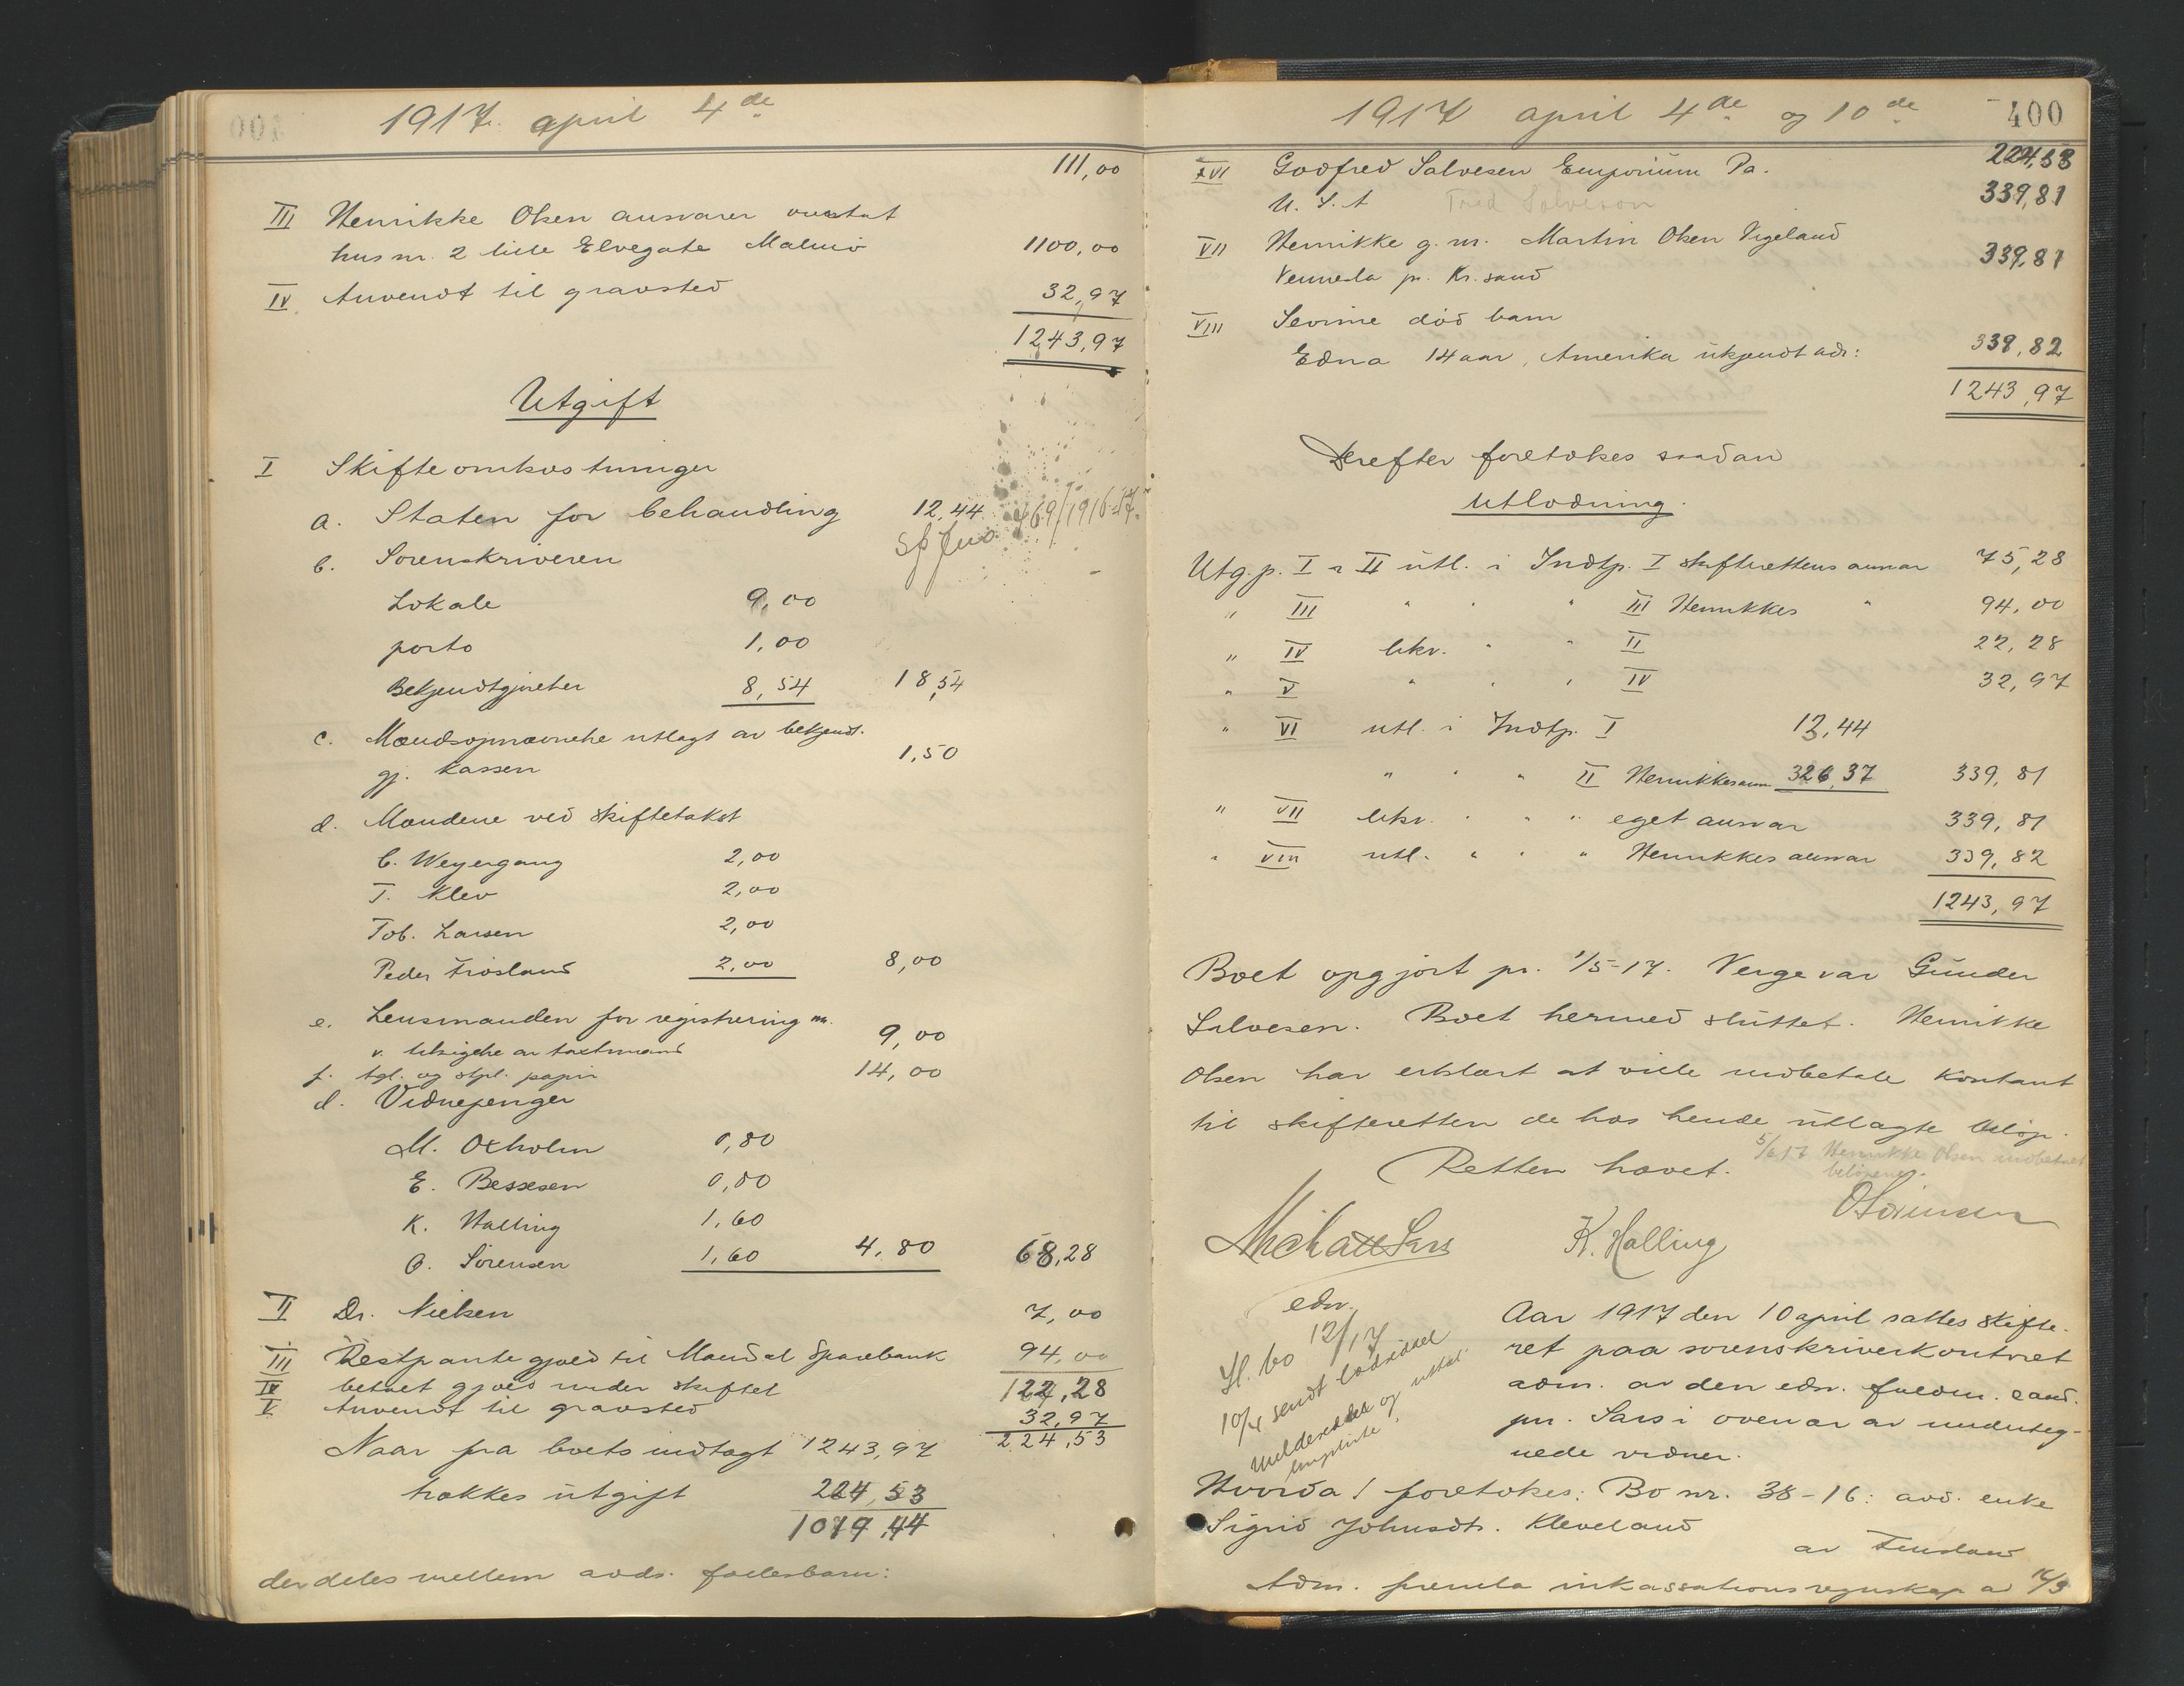 1917. april 4de
111,00
III Henrikke Olsen ansvarer overtat
hus nr. 2 lille Elvegate Malmø 1100,00
IV Anvendt til gravsted 32,97
1243,97
Utgift
I Skifteomkostninger
a. Staten for behandling 12,44 469/1916-17.
b. Sorenskriveren
Lokale 9,00
porto 1,00
Bekjendtgjørelser 8,54 18,54
c. Mandsopnævnelse utlagt av bekjendt.
gj. kassen 1,50
d. Mændene ved skiftetakst
C. Weyergang 2,00
T. Klev 2,00
Tob. Larsen 2,00
Peder Frøsland 2,00 8,00
e. Lensmanden for registrering m.
v. tilsigelse av taxtmænd 9,00
f. tgl. og stpl. papir 14,00
d. Vidnepenger
M. Oxholm 0,80
E. Bessesen 0,80
K. Halling 1,60
O. Sørensen 1,60 4,80 68,28
II Dr. Nielsen 7,00
III Restpantegjæld til Mandal Sparebank 94,00
IV betalt gjæld under skiftet 122,28
V Anvendt til gravsted 32,97
224,53
Naar fra boets indtægt 1243,97
trækkes utgift 224,53
1019,44
der deles mellem avds. fællesbarn:
1917 april 4de og 10de 400
224,53
XVI Godfred Salvesen Emporium Pa.
U. S. A Fred Salveson 339,81
VII Henrikke g. m. Martin Olsen Vigeland
Vennesla pr. Kr.sand 339,81
VIII Sevrine død barn
Edna 14 aar, Amerika ukjendt adr: 339,82
1243,97
Derefter foretokes saadan
Utlodning.
Utg. p. I & II utl. i Indtp. I skifterettens ansvar 75,28
" III " " " III Henrikkes " 94,00
" IV likv. " " II 22,28
" V " " " IV 32,97
" VI utl. i Indtp. I 13,44
" " " II Henrikkes ansv. 326,37 339,81
" VII likv. " " " eget ansvar 339,81
" VIII utl. " " " Henrikkes ansvar 339,82
1243,97
Boet opgjort pr. 1/5-17. Verge var Gunder
Salvesen. Boet hermed sluttet. Henrikke
Olsen har erklært at ville indbetale kontant
til skifteretten de hos hende utlagte beløp.
5/6 17 Henrikke Olsen indbetalt
beløpene.
Retten hævet.
Michael Sars K. Halling O Sørensen
edsv.
Sl. bo 12/17
10/4 sendt lodseddel
meldeseddel og utlod-
ningsliste.
Aar 1917 den 10 april sattes skifte-
ret paa sorenskriverkontoret
adm. av den edsv. fuldm. cand.
jur. Sars i overvær av underteg-
nede vidner.
Hvorda / foretokes: Bo nr. 38-16: avd. enke
Sigrid Johnsdt. Kleveland
av Finsland
Adm. fremla inkassationsregnskap av 14/3